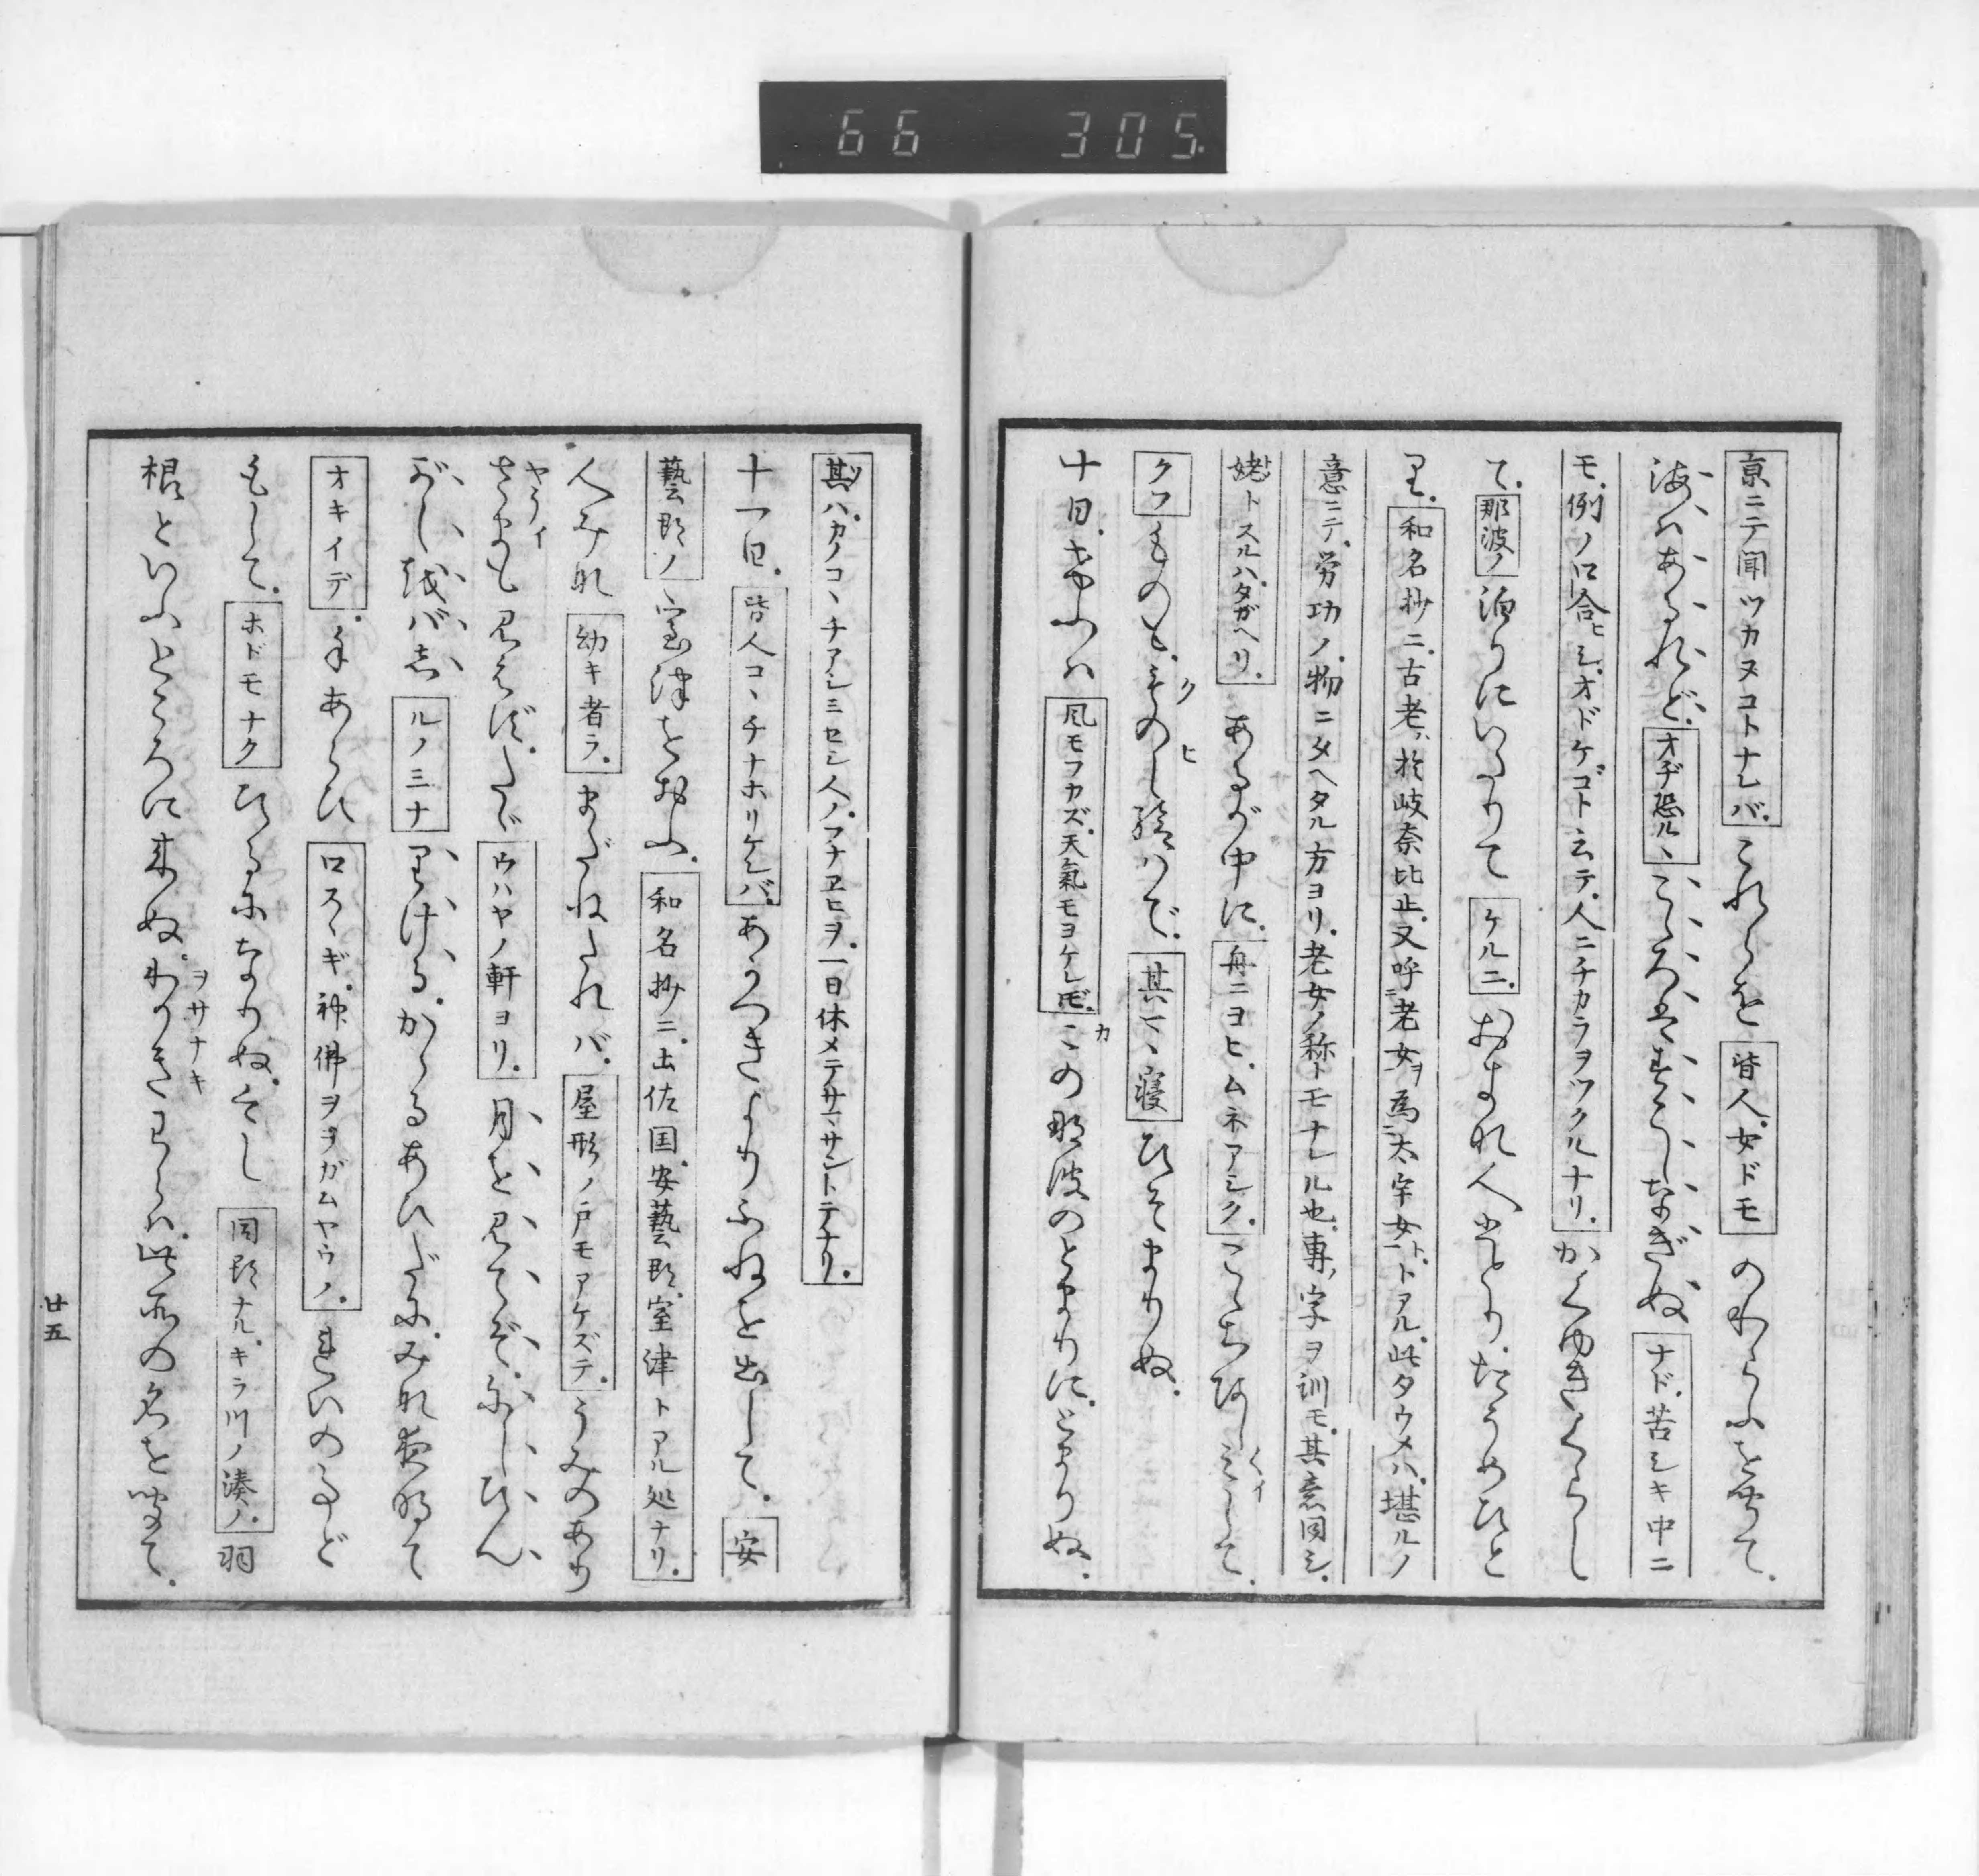 66 305
京ニテ聞ツカヌコトナレバこれらを皆人女ドモのわらふを聞て
海ハあるれどオヂ恐ルヽこゝろはすこしなぎぬナド苦シキ中ニ
モ例ノ口合ヒシオドケゴト云テ人ニチカラヲツクルナリかくゆきくらし
て那波ノ泊りにいたりてケルニおきな人ひとりたうめひと
り和名抄ニ古老於岐奈比止又呼老女ヲ為太宇女トトアル此タウメハ堪ルノ
意ニテ労功ノ物ニタヘタル方ヨリ老女ノ称トモナレル也専ノ字ヲ訓モ其意同シ
姥トスルハタガヘリあるが中に舟ニヨヒムネアシクこゝちあしミして
クフものもものし給はで其マヽ寝ひそまりぬ
十日けふハ風モフカズ天氣モヨケレドモこの那波のとまりにとまりぬ
其ハカノコヽチアシミセシ人ノフナヱヒヲ一日休メテサマサントテナリ
十一日皆人コヽチナホリケレバあかつきよりふねを出して安
藝郡ノ室津をおふ和名抄ニ土佐国安藝郡室津トアル処ナリ
人みな幼キ者ラまだねたれバ屋形ノ戸モアケズテうみのあり
さまも見えずたゞウハヤノ軒ヨリ月を見てぞにしひん
がしをバしルノミナりけるかゝるあひだにみな夜明て
オキイデ手あらひ口スヽギ神佛ヲヲガムヤウノれいのことど
もしてホドモナクひるになりぬ今し同郡ナルキラ川ノ湊ノ羽
根といふところに来ぬわかきわらハ此所の名を聞て
ヲサナキ
廿五